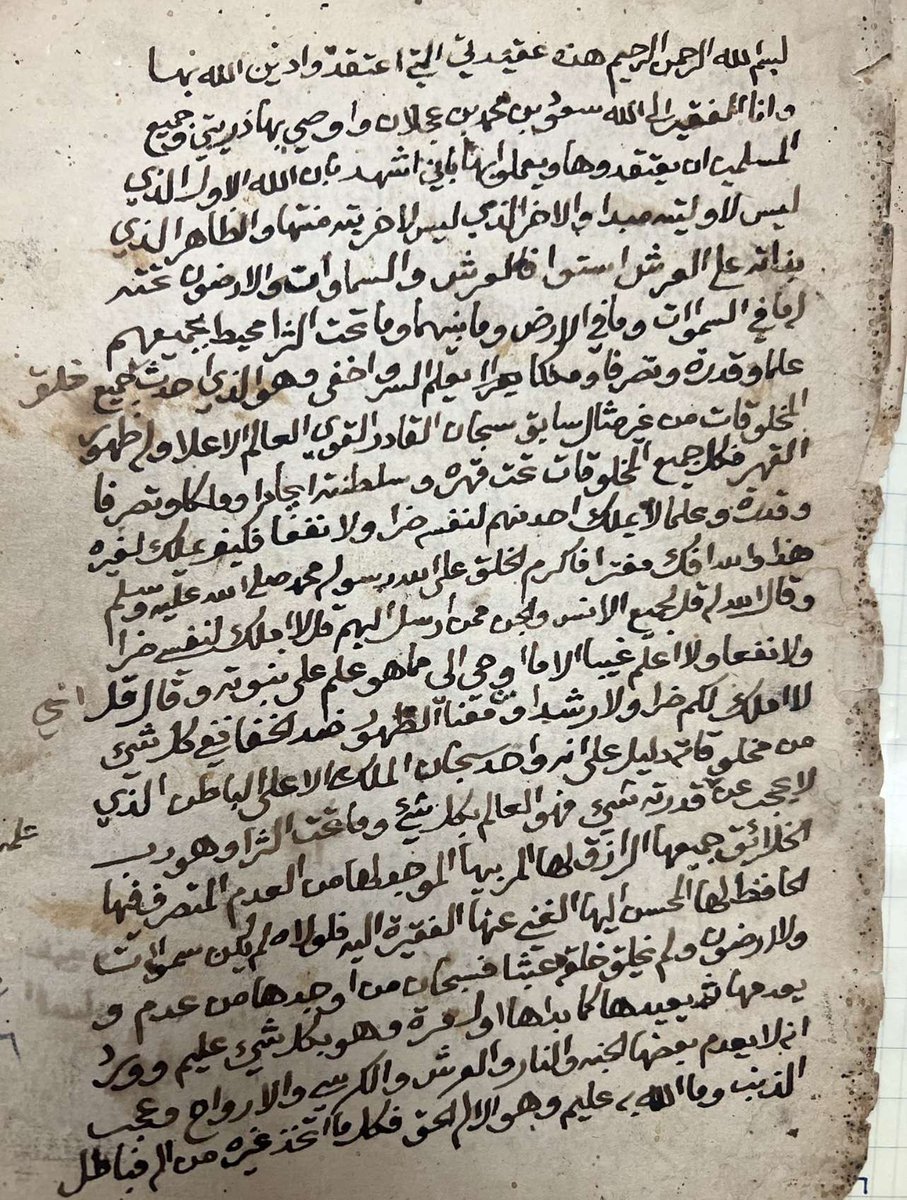 بسم الله الرحمن الرحيم هذه عقيدتي التي اعتقد وادين الله بها
وانا الفقير الى الله سعود بن محمد بن عجلان واوصي بها ذريتي وجميع
المسلمين ان يعتقدوها ويعملوا بها باني اشهد بان الله الاول الذي
ليس لاوليته مبدا والاخر الذي ليس لاخريته منتها والظاهر الذي
بذاته على العرش استوا فالعرش والسماوات والارضون تحته
له ما في السموات وما في الارض وما بينهما وما تحت الثرا محيط بجميعهم
علما وقدرة وتصرفا وملكا يعلم السر واخفى وهو الذي احدث جميع خلق
المخلوقات من غير مثال سابق سبحان القادر القوي العالم الاعلا وله ظهور
القهر فكل جميع المخلوقات تحت قهره وسلطنته ايجادا وملكا وتصرفا
وقدرة وعلما لا يملك احد منهم لنفسه ضرا ولا نفعا فكيف يملك لغيره
هذا والله افك مفترا فاكرم الخلق على الله رسوله محمد صلى الله عليه وسلم
وقال الله له قل لجميع الانس والجن ممن أرسل اليهم قل لا املك لنفسي ضرا
ولا نفعا ولا اعلم غيبا الا ما اوحي الى مما هو علم على نبوته وقال قل اني
لا املك لكم ضرا ولا رشدا الظهور ضد الخفا ففي كل شيء
من مخلوقاته دليل على انه واحد سبحان الملك الاعلى الباطن الذي
لا يحجب عن قدرته شيء فهو العالم بكل شيء وما تحت الثرا وهو رب
علمه
الخلائق جميعها الرازق لها المربيها الموجد لها من العدم المتصرف فيها
الحافظ لها المحسن اليها الغني عنها الفقيرة اليه فلولاه لم يكن سموات
ولا ارضون ولم يخلق خلقه عبثا فسبحان من اوجدها من عدم و
يعدمها ثم يعيدها كما بداها اول مرة وهو بكل شيء عليم وورد
انه لا يعدم بعضها الجنه والنار والعرش والكرسي والارواح وعجب
الذنب وما الله به عليم وهو الاله الحق فكل ما اتخذ غيره من اله فباطل